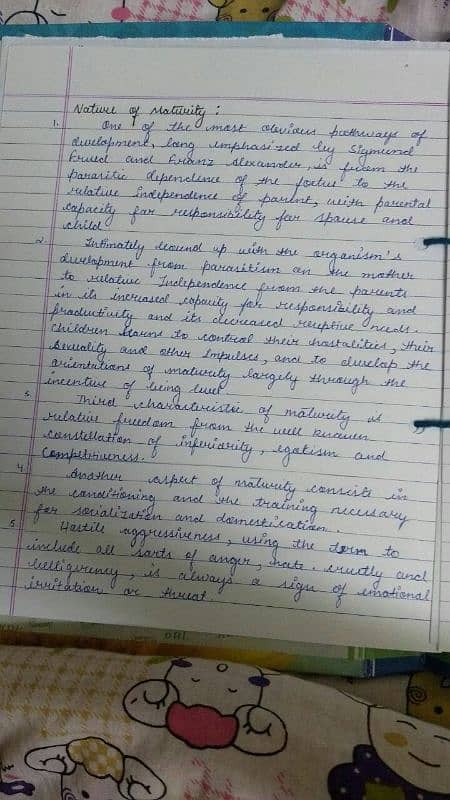 Nature of Maturity :
1. One of the most obvious pathways of
development, long emphasized by Sigmund
Freud and Franz Alexander, is from the
parasitic dependence of the foetus to the
relative independence of parent, with parental
capacity for responsibility for spouse and
child.
2. Intimately bound up with the organism's
development from parasitism on the mother
to relative Independence from the parents
in its increased capacity for responsibility and
productivity and its decreased receptive needs.
Children learns to control their hostalities, their
sexuality and other Impulses, and to develop the
orientations of maturity largely through the
incentive of being loved.
3. Third characteristic of maturity is
relative freedom from the well known
constellation of inferiority, egatism and
Competitiveness.
4. Another aspect of maturity consists in
the conditioning and the training necessary
for socialization and domestication.
5. Hostile aggressiveness, using the term to
include all sorts of anger, hate, cruelty and
belligerency, is always a sign of emotional
irritation or threat.